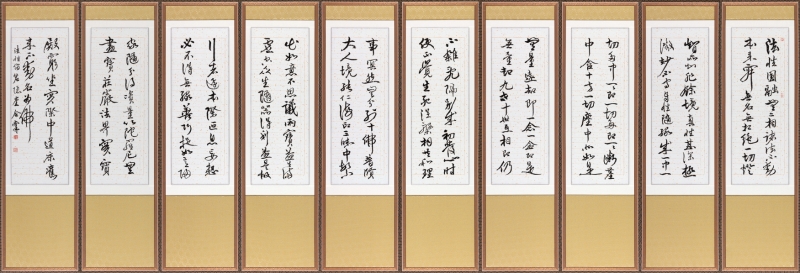 法性圓融無二相諸法不動
本來寂無名無相絶一切證
智所知非餘境眞性甚深極
微妙不守自性隨緣成一中一
切多中一一卽一切多卽一一微塵
中含十方一切塵中亦如是
無量遠劫卽一念一念卽是
無量劫九世十世互相卽仍
不雜亂隔別成初發心時
便正覺生死涅槃相共和理
事冥然無分別十佛普賢
大人境能仁海印三昧中繁
出如意不思議雨寶益生滿
虛空衆生隨器得利益是故
行者還本際叵息妄想
必不得無緣善巧捉如意歸
家隨分得資糧以陀羅尼無
盡寶莊嚴法界實寶
殿窮坐實際中道床舊
來不動名爲佛
法性偈